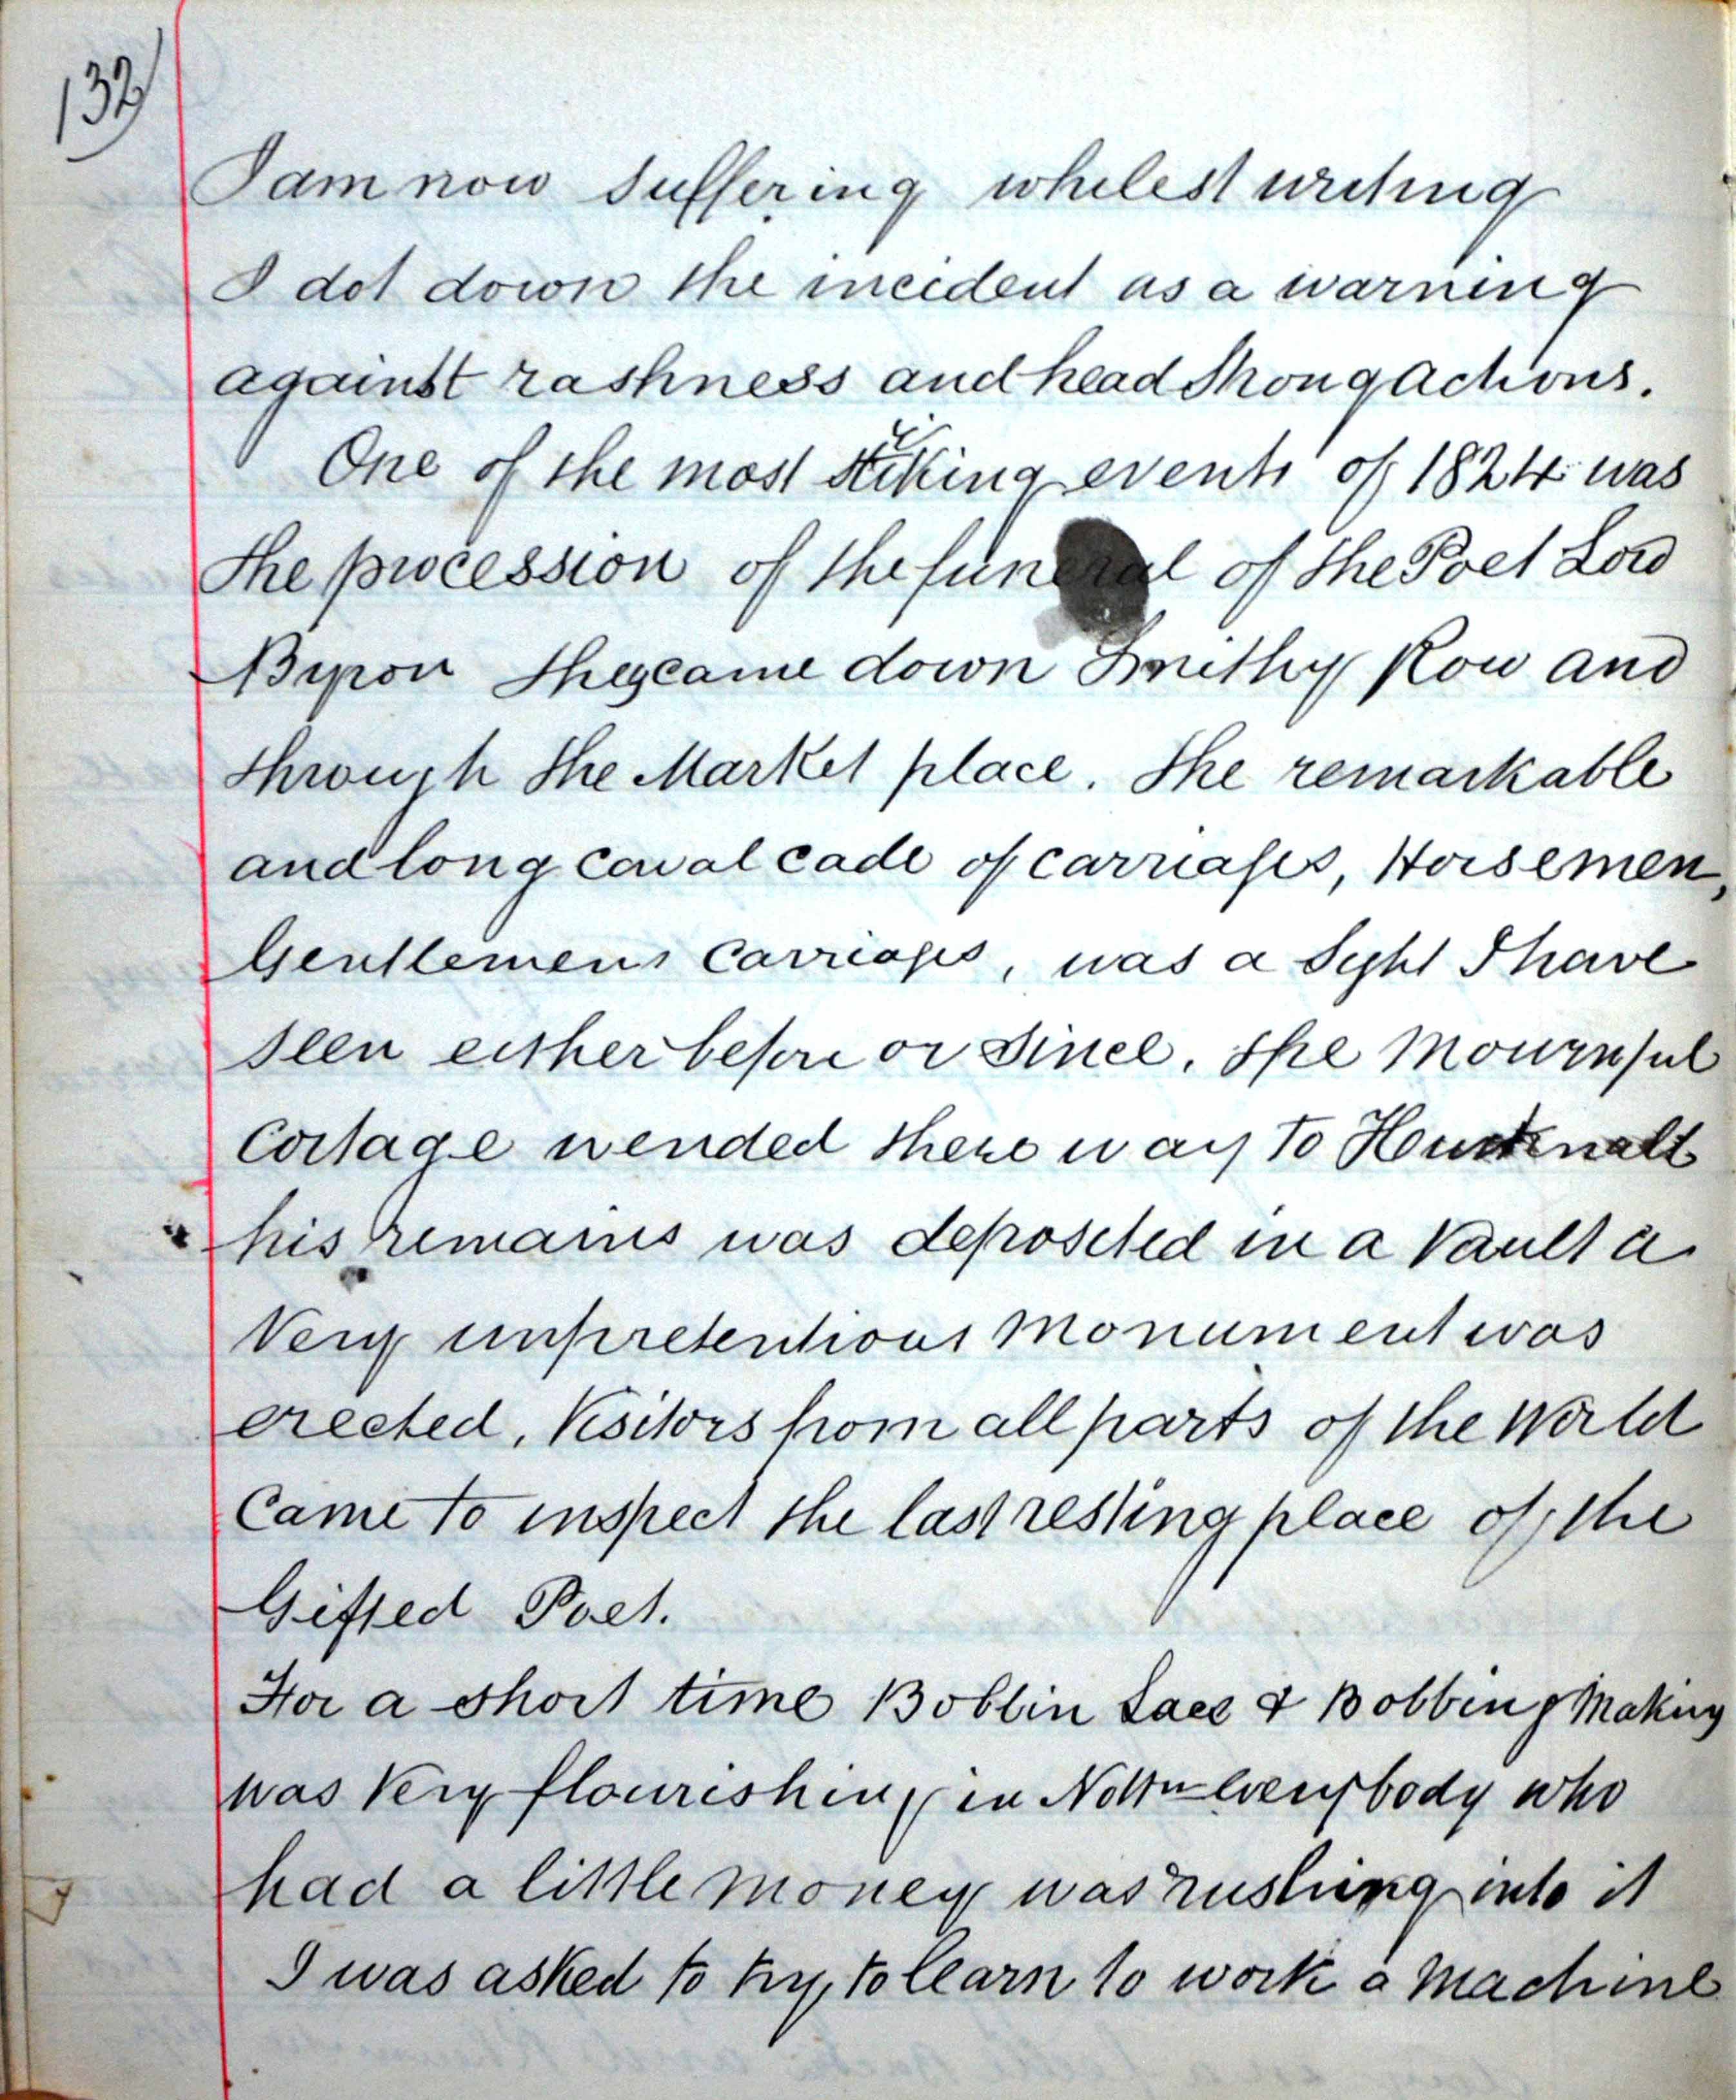 132
I am now suffering whilest writing
I dot down the incident as a warning
against rashness and head strong actions.
One of the most striking events of 1824 was
the procession of the funeral of the Poet Lord
Byron they came down Smithy Row and
through the Market place. The remarkable
and long cavalcade of carriages, Horsemen,
Gentlemens Carriages, was a sight I have
seen either before or since. The Mournful
Cortage wended there way to
his remains was deposited in a Vault a
Very unpretentious Monument was
erected, Visitors from all parts of the World
Came to inspect the last resting place of the
Gifted Poet.
For a short time Bobbin Lace & Bobbing Making
was Very flourishing in Nottm everybody who
had a little money was rushing into it
I was asked to try to learn to work a Machine